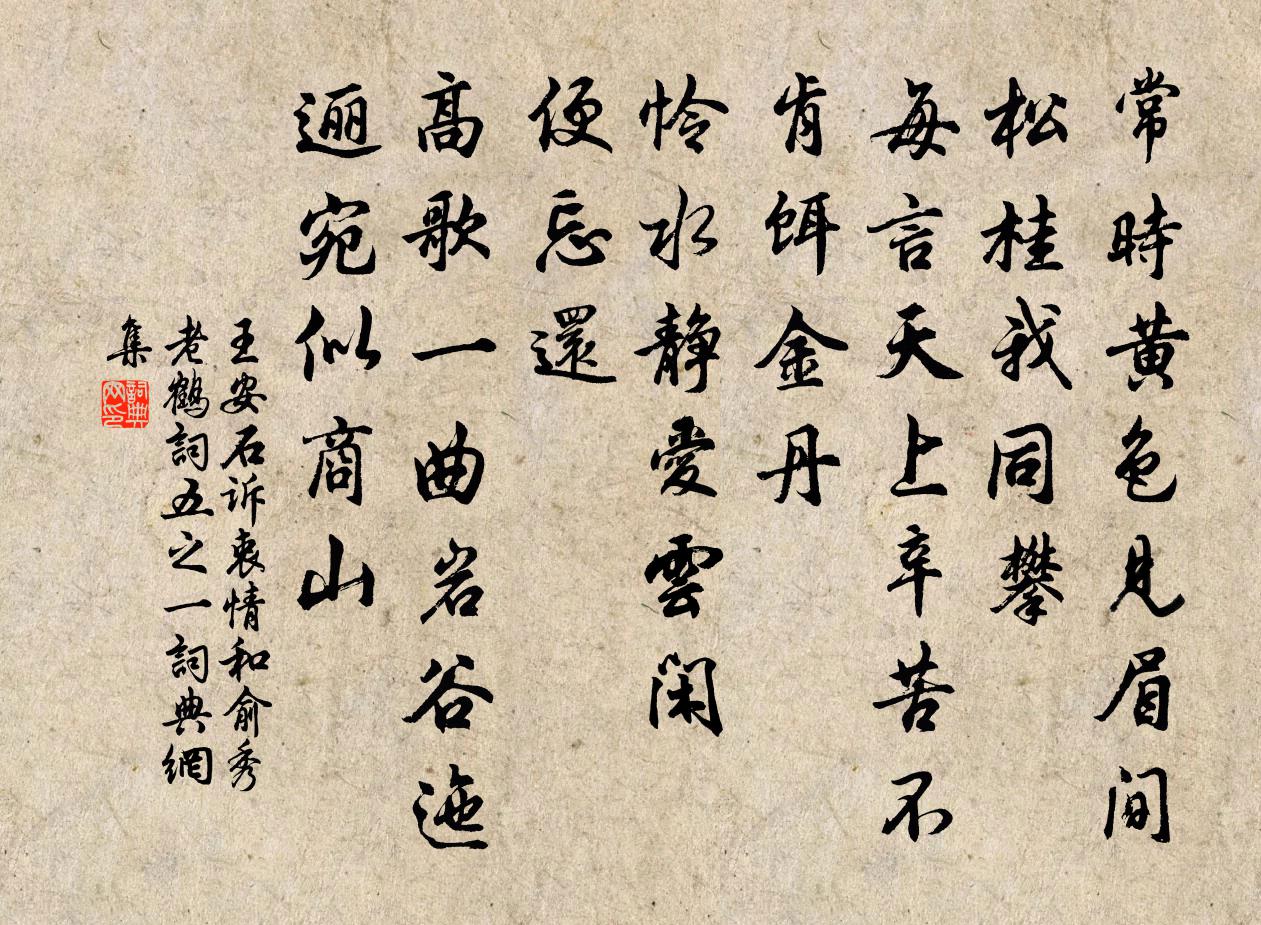 常時黃色見眉間
松桂我同攀
每言天上辛苦不
肯餌金丹
怜水靜愛雲閑
便忘還
高歌一曲岩谷迤
逦宛似商山
王安石诉衷情和俞秀
老鶴詞五之一詞典網
集
詞典網印